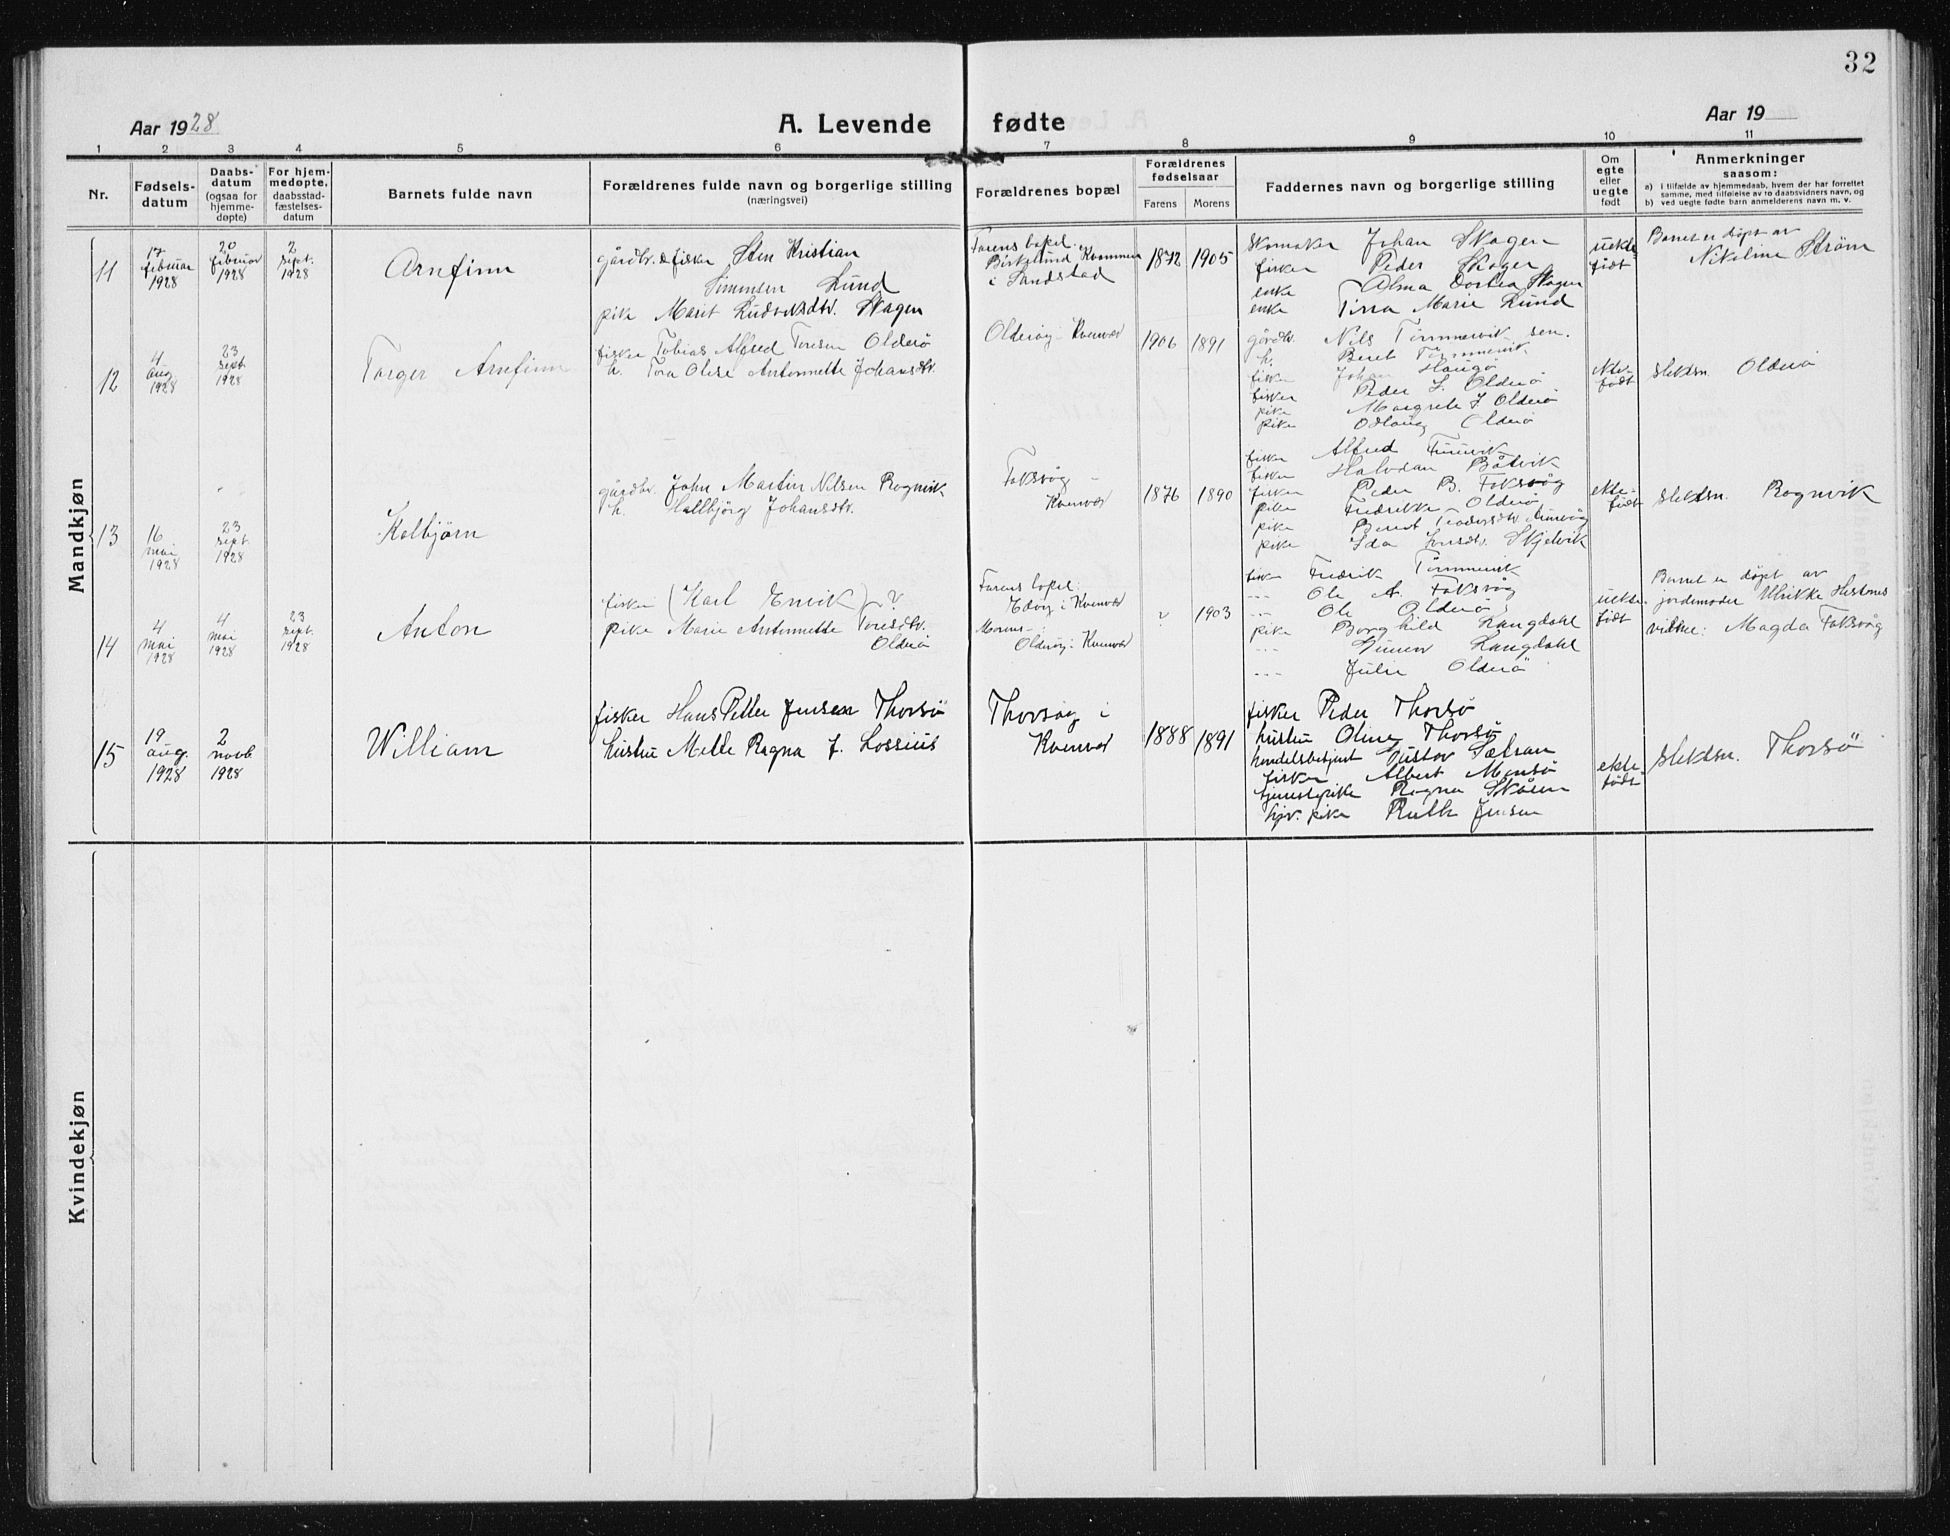 32
Aar 1928
A. Levende fødte
Aar 19
1 2 3 4 5 6 7 8 9 10 11
Nr.
Fødsels-
datum
Daabs-
datum
(ogsaa for
hjemme-
døpte)
For hjem-
medøpte,
daabsstad-
fæstelses-
datum
Barnets fulde navn
Forældrenes fulde navn og borgerlige stilling
(næringsvei)
Forældrenes bopæl
Forældrenes
fødselsaar
Farens Morens
Faddernes navn og borgerlige stilling
Om
egte
eller
uegte
født
Anmerkninger
saasom:
a) i tilfælde av hjemmedaab, hvem der har forrettet
samme, med tilføielse av to daabsvidners navn, og
b) ved uegte fødte barn anmelderens navn m. v.
Mandkjøn
11
17
februar
1928
20
februar
1928
2
sept.
1928
Arnfinn
gårdbr. & fisker Sten Kristian
Simonsen Lund
pike Marit Ludviksdtr. Skagen
Farens bopel.
Birkelund, Kvammen
i Sandstad
1872 1905
skomaker Johan Skagen
fisker Peder Skagen
enke Alma Dortea Skagen
enke Tina Marie Lund
uekte
født
Barnet er døpt av
Nikoline Strøm
12
4
aug
1928
23
sept
1928
Torger Arnfinn
fisker Tobias Alfred Toresen Olderø
h. Tora Oline Antonnette Johansdtr.
Olderøy i Kvenvær
1906 1891
gårdbr. Nils Tømmervik sen.
h. Beret Tømmervik
fisker Johan Haugø
fisker Peder L. Olderø
pike Margrete J. Olderø
pike Odlaug Olderø
ekte-
født
slektsn. Olderø
13
16
mai
1928
23
sept
1928
Kolbjørn
gårdbr. John Martin Nilsen Rognvik
h. Hallbjørg Johansdtr.
Foksvåg -
Kvenvær
1876 1890
fisker Alfred
fisker Halvdan Båtvik
fisker Peder B. Foksvåg
pike Fredrikke Olderø
pike Berit
pike Ida Skjelvik
ekte-
født
slektsn. Rognvik
14
4
mai
1928
4
mai
1928
23
sept.
1928
Anton
fisker (Karl Ervik) ?
pike Marie Antonnette Toresdtr.
Olderø
Farens bopel.
i Kvenvær
Morens -
Olderøy i Kvenvær
1903
fisker Fredrik Tømmervik
--- Ole A. Foksvåg
--- Ole Olderø
pike Borghild Langdahl
--- Langdahl
--- Julie Olderø
uekte-
født
Barnet er døpt av
jordemoder Ulrikke Hestnes
vidne: Magda Foksvåg
15
19
aug.
1928
2
novb
1928
William
fisker Hans Petter Jensen Thorsø
hustru Mette Ragna J. Lossius
Thorsøy i
Kvenvær
1888 1891
fisker Peder Thorsø
hustru Oline Thorsø
handelsbetjent Gustav Sætran
fisker Albert Monsø
tjenestepike Ragna Skåren
hjv. pike Ruth Jensen
ekte
født
slektsn. Thorsø
Kvindekjøn